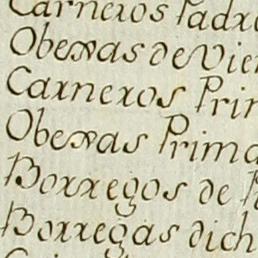 Carneros Padr
Obexas de Vien
Carneros Prim
Obexas Prima
Borregos de
Borregas dich